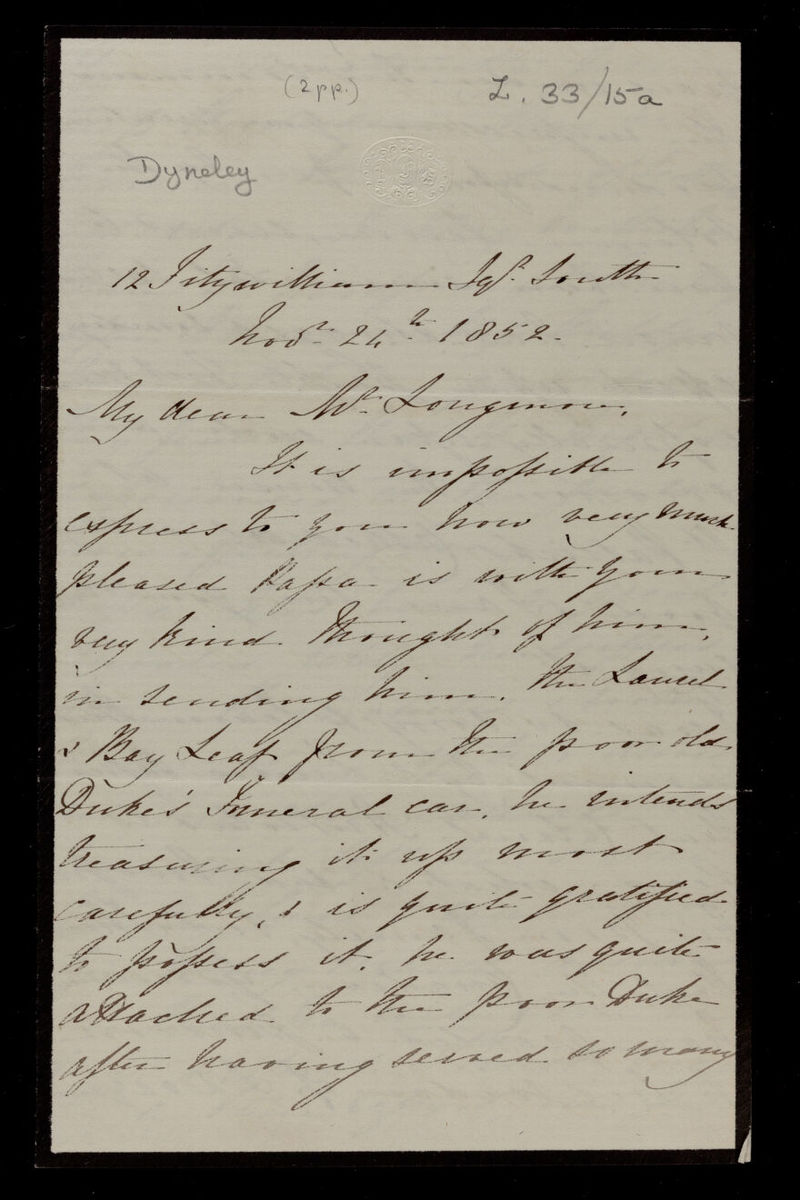 (2 pp.)
L. 33/15a
Dyneley
12 Fitzwilliam Sqr. South
Novr. 24th 1852.
My dear Mr. Longmore,
It is impossible to
express to you how very much
pleased Papa is with your
very kind thought of him,
in sending him, the Laurel
& Bay Leaf from the poor old
Duke's Funeral car, he intends
treasuring it up most
carefully, & is quite gratified
to possess it, he was quite
attached to the poor Duke
after having served so many